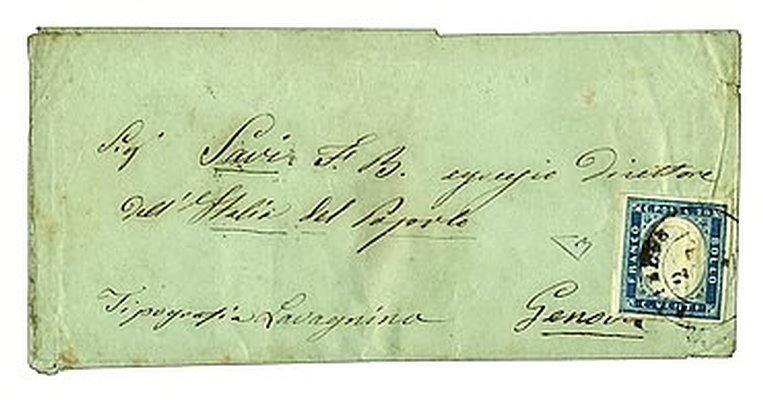 Sig.r Savi F. B. egregio Direttore
dell'Italia del Popolo
Tipografia Lavagnino
Genova
FRANCO
BOLLO